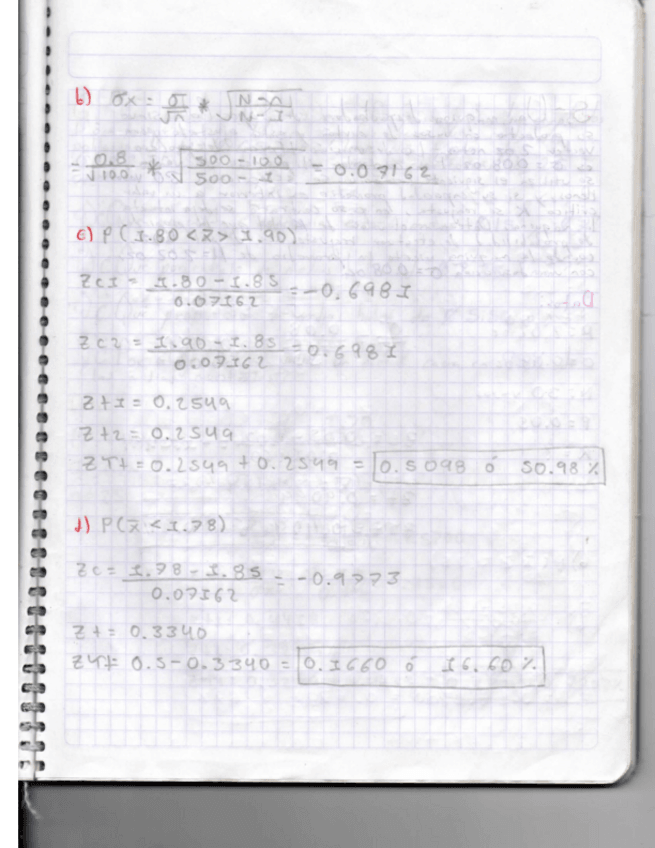 b) σx = σ/√n * √(N-n/N-1)
= 0.8/√100 * √(500-100/500-1) = 0.07162
c) P(1.80 < x̄ > 1.90)
Zc1 = 1.80-1.85/0.07162 = -0.6981
Zc2 = 1.90-1.85/0.07162 = 0.6981
Zt1 = 0.2549
Zt2 = 0.2549
ZTt = 0.2549 + 0.2549 = 0.5098 ó 50.98%
d) P(x̄ < 1.78)
Zc = 1.78-1.85/0.07162 = -0.9773
Zt = 0.3340
ZTt= 0.5-0.3340 = 0.1660 ó 16.60%